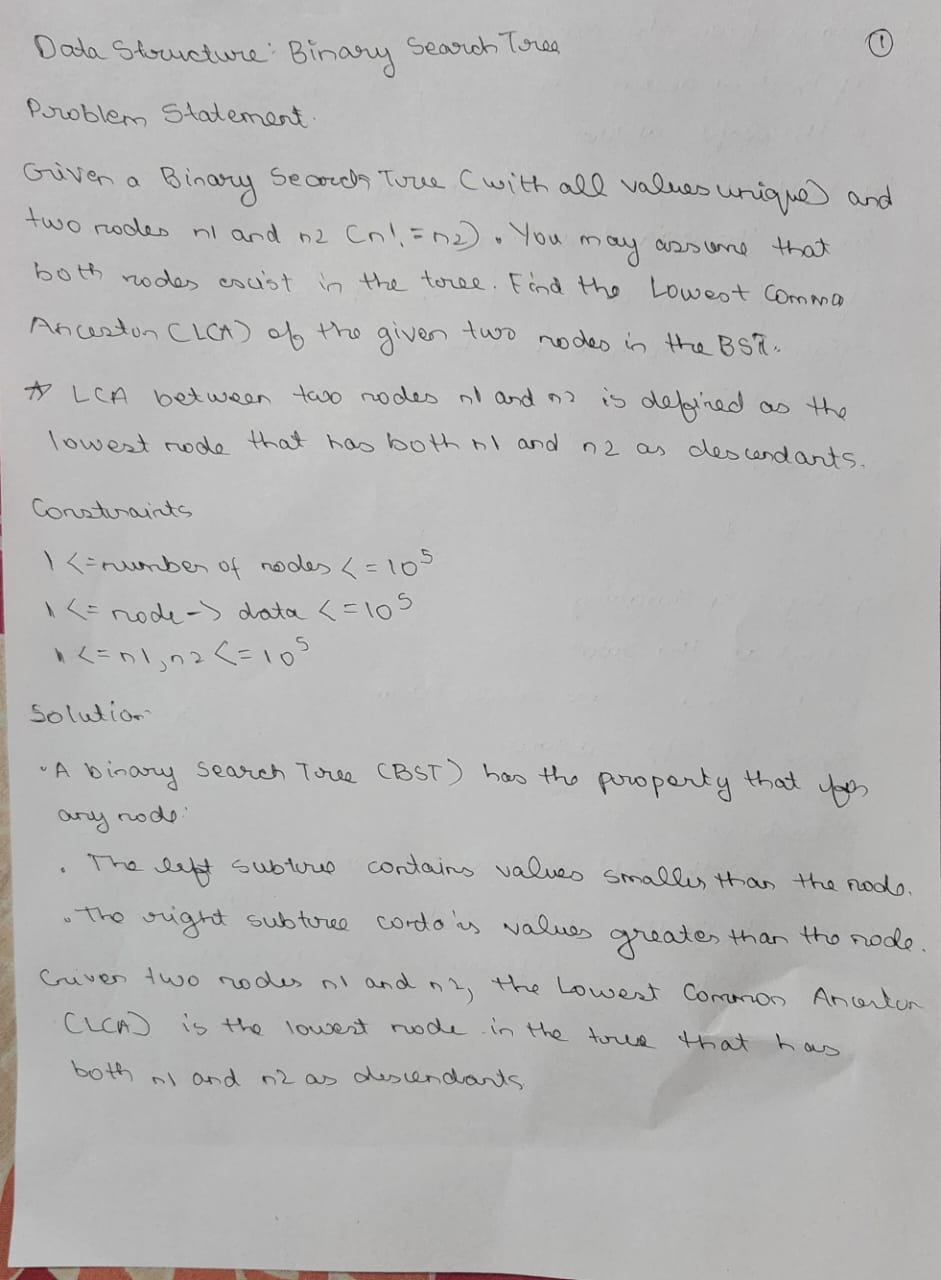 Data Structure: Binary Search Tree
1
Problem Statement.
Given a Binary Search Tree (with all values unique) and
two nodes n1 and n2 (n1!=n2). You may assume that
both nodes exist in the tree. Find the Lowest Commo
Ancestor (LCA) of the given two nodes in the BST.
☆ LCA between two nodes n1 and n2 is defined as the
lowest node that has both n1 and n2 as descendants.
Constraints
1 <= number of nodes <= 10^5
1 <= node -> data <= 10^5
1 <= n1, n2 <= 10^5
Solution
• A binary Search Tree (BST) has the property that for
any node:
• The left subtree contains values smaller than the node.
• The right subtree contains values greater than the node.
Given two nodes n1 and n2, the Lowest Common Ancestor
(LCA) is the lowest node in the tree that has
both n1 and n2 as descendants